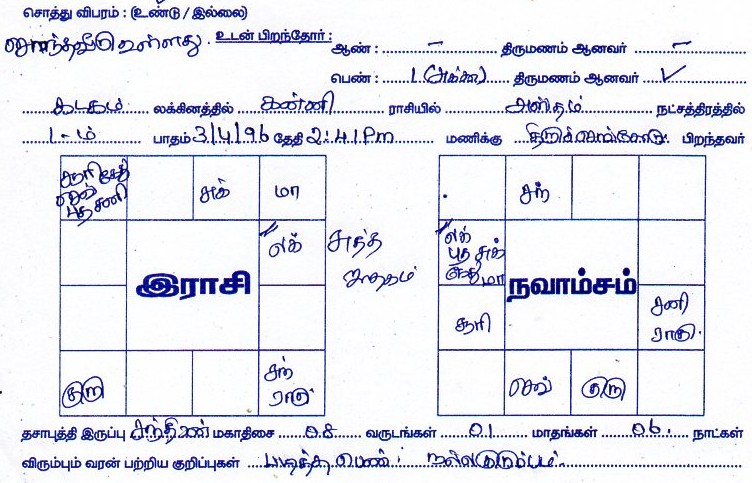 சொத்து விபரம் : (உண்டு / இல்லை)
சொந்தவீடு உள்ளது. உடன் பிறந்தோர் : ஆண் : – திருமணம் ஆனவர் –
பெண் : 1 (அக்கா) திருமணம் ஆனவர் ✓
கடகம் லக்கினத்தில் கன்னி ராசியில் அஸ்தம் நட்சத்திரத்தில்
1-ம் பாதம் 3/4/96 தேதி 2:41 Pm மணிக்கு திருச்செங்கோடு பிறந்தவர்
சூரி கேது சுக் மா
செவ் சந்
புத சனி
லக் சுத்த லக்
இராசி ஜாதகம் புத சுக் நவாம்சம்
கேது மா
சூரி சனி
ராகு
குரு சந் செவ் குரு
ராகு
தசாபுத்தி இருப்பு சந்திரன் மகாதிசை 08 வருடங்கள் 01 மாதங்கள் 06 நாட்கள்
விரும்பும் வரன் பற்றிய குறிப்புகள் படித்த பெண். நல்ல குடும்பம்.